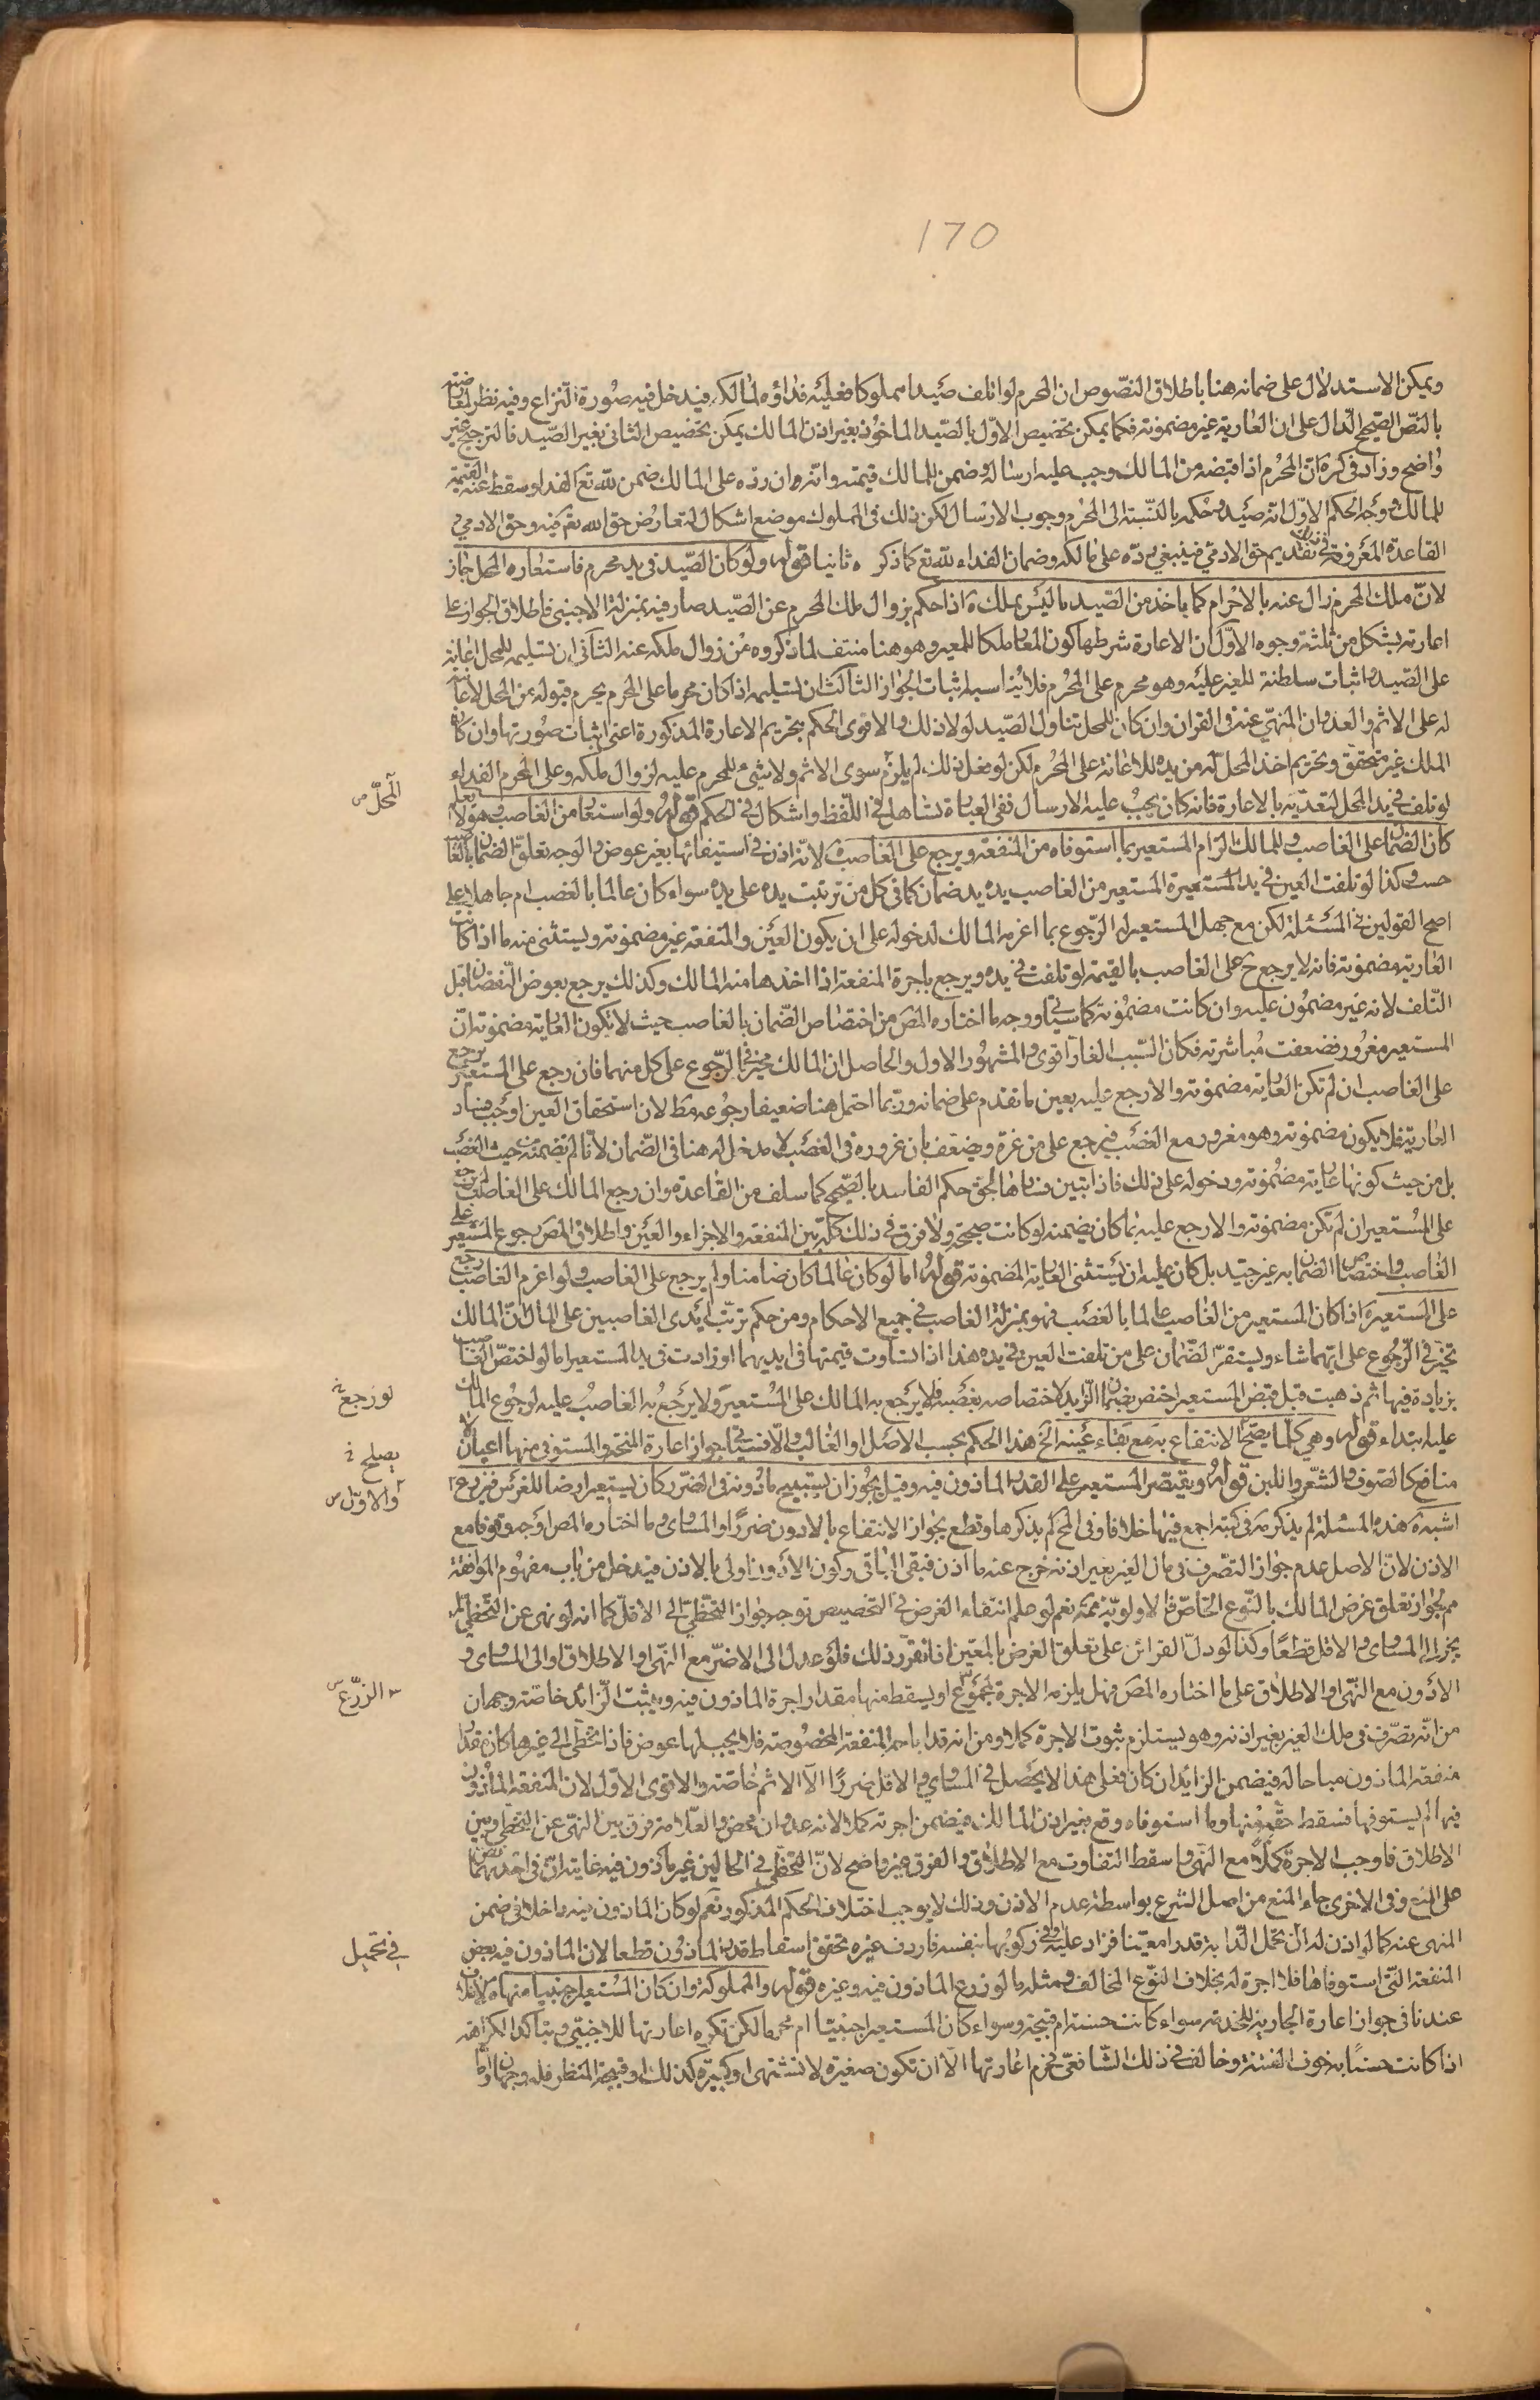 170
ويمكن الاستدلال على ضمانه هنا باطلاق النصوص ان المحرم لو اتلف صيدا مملوكا فعليه فداؤه لمالكه فيدخل فيه صورة النزاع وفيه نظر لمعارضته
بالنص الصحيح الدال على ان العارية غير مضمونة فكما يمكن تخصيص الاول بالصيد الماخوذ بغير اذن المالك يمكن تخصيص الثانى بغير الصيد فالترجيح غير
واضح وزاد فى كرة ان المحرم اذا قبضه من المالك وجب عليه ارساله وضمن للمالك قيمته وانه ان رده على المالك ضمن لله تع الفداء وسقط عنه القيمة
للمالك ووجه الحكم الاول انه صيد وحكمه بالنسبة الى المحرم وجوب الارسال لكن ذلك فى المملوك موضع اشكال لتعارض حق الله تع فيه وحق الادمي و
القاعدة المعروفة تقديم حق الادمي فينبغي رده على مالكه وضمان الفداء لله تع كما ذكره ثانيا قوله ولو كان الصيد فى يد محرم فاستعاره المحل جاز
لان ملك المحرم زال عنه بالاحرام كما ياخذ من الصيد ما ليس بملك ه اذا حكم بزوال ملك المحرم عن الصيد صار فيه بمنزلة الاجنبى فاطلاق الجواز على
اعارته يشكل من ثلثة وجوه الاول ان الاعارة شرطها كون المعار ملكا للمعير وهو هنا منتف لما ذكروه من زوال ملكه عنه الثانى ان تسليمه للمحل اعانة
على الصيد واثبات سلطنة للغير عليه وهو محرم على المحرم فلا يناسبه اثبات الجواز الثالث ان تسليمه اذا كان محرما على المحرم يحرم قبوله من المحل لاعانته
له على الاثم والعدوان المنهي عنه فى القران وان كان للمحل تناول الصيد لولا ذلك والاقوى الحكم بتحريم الاعارة المذكورة اعنى اثبات صورتها وان كان
الملك غير متحقق وتحريم اخذ المحل له من يده للاعانة على المحرم لكن لو فعل ذلك لم يلزم سوى الاثم ولا شىء للمحرم عليه لزوال ملكه وعلى المحرم الفداء
لو تلف فى يد المحل لتعديه بالاعارة فانه كان يجب عليه الارسال ففى العبارة تساهل فى اللفظ واشكال فى الحكم قوله ولو استعار من الغاصب وهو لا يعلم
كان الضمان على الغاصب وللمالك الزام المستعير بما استوفاه من المنفعة ويرجع على الغاصب لانه اذن فى استيفائها بغير عوض والوجه تعلق الضمان بالغاصب
حسب وكذا لو تلفت العين فى يد المستعير ه المستعير من الغاصب يده يد ضمان كما فى كل من ترتبت يده على يده سواء كان عالما بالغصب ام جاهلا على
اصح القولين فى المسئلة لكن مع جهل المستعير له الرجوع بما اغرمه المالك لدخوله على ان يكون العين والمنفعة غير مضمونة ويستثنى منه ما اذا كانت
العارية مضمونة فانه لا يرجع ح على الغاصب بالقيمة لو تلفت فى يده ويرجع باجرة المنفعة اذا اخذها منه المالك وكذلك يرجع بعوض النقصان قبل
التلف لانه غير مضمون عليه وان كانت مضمونة كما سياتي ووجه ما اختاره المص من اختصاص الضمان بالغاصب حيث لا يكون العارية مضمونة ان
المستعير مغرور فضعفت مباشرته فكان السبب الغار اقوى والمشهور الاول والحاصل ان المالك مخير فى الرجوع على كل منهما فان رجع على المستعير يرجع
على الغاصب ان لم تكن العارية مضمونة والا رجع عليه بعين ما تقدم على ضمانه وربما احتمل هنا ضعيفا رجوعه مط لان استحقاق العين اوجب فساد
العارية فلا يكون مضمونة وهو مغرور مع الغصب فيرجع على من غره ويضعف بان غروره فى الغصب لا مدخل له هنا فى الضمان لانا لم نضمنه من حيث الغصب
بل من حيث كونها عارية مضمونة ودخوله على ذلك فاذا تبين فسادها لحق حكم الفاسد بالصحيح كما سلف من القاعدة وان رجع المالك على الغاصب لم يرجع
على المستعير ان لم تكن مضمونة والا رجع عليه بما كان يضمنه لو كانت صحيحة ولا فرق فى ذلك كله بين المنفعة والاجزاء والعين واطلاق المص رجوع المستعير على
الغاصب واختصاص الضمان به غير جيد بل كان عليه ان يستثنى العارية المضمونة قوله اما لو كان عالما كان ضامنا ولم يرجع على الغاصب ولو اغرم الغاصب رجع
على المستعير ه اذا كان المستعير من الغاصب عالما بالغصب فهو بمنزلة الغاصب فى جميع الاحكام ومن حكم ترتب ايدى الغاصبين على المال ان المالك
تخير فى الرجوع على ايهما شاء ويستقر الضمان على من تلفت العين فى يده هذا اذا تساوت قيمتها فى ايديهما او زادت فى يد المستعير اما لو اختص الغاصب
بزيادة فيها ثم ذهبت قبل قبض المستعير اختص بضمان الزايد لاختصاصه بغصبه فلا يرجع به المالك على المستعير ولا يرجع به الغاصب عليه لو رجع المالك
عليه ابتداء قوله وهي كلما يصح الانتفاع به مع بقاء عينه الخ هذا الحكم بحسب الاصل او الغالب والا فسياتي جواز اعارة المنحة والمستوفى منها اعيان لا
منافع كالصوف والشعر واللبن قوله ويقتصر المستعير على القدر الماذون فيه وقيل يجوز ان يستبيح ما دونه فى الضرر كان يستعير ارضا للغرس فيزرع
اشبه ه هذه المسئلة لم يذكر فى كتبه اجمع فيها خلافا وفى التحرير لم يذكرها وقطع بجواز الانتفاع بالادون ضررا او المساوى وما اختاره المص اوجه وقوفا مع
الاذن لان الاصل عدم جواز التصرف فى مال الغير بغير اذنه خرج عنه ما اذن فبقى الباقى وكون الادون اولى بالاذن فيدخل من باب مفهوم الموافقة
مم لجواز تعلق غرض المالك بالنوع الخاص فالاولوية ممنوعة نعم لو علم انتفاء الغرض فى التخصيص توجه جواز التخطي الى الاقل كما انه لو نهى عن التخطي لم
يجز الى المساوى والاقل قطعا وكذا لو دل القرائن على تعلق الغرض بالمعين اذا تقرر ذلك فلو عدل الى الاضر مع النهى او الاطلاق والى المساوى و
الادون مع النهى او الاطلاق على ما اختاره المص فهل يلزمه الاجرة لمجموع او يسقط منها مقدار اجرة الماذون فيه ويثبت الزائد خاصة وجهان
من انه تصرف فى ملك الغير بغير اذنه وهو يستلزم ثبوت الاجرة كملا ومن انه قد اباحه المنفعة المخصوصة فلا يجب لها عوض فاذا تخطى الى غيرها كان مقدار
منفعة الماذون مباحا له فيضمن الزائد ان كان فعلى هذا لا يحصل فى المساوي والاقل ضررا الا الاثم خاصة والاقوى الاول لان المنفعة الماذون
فيها لم يستوفها فسقط حقه منها وما استوفاه وقع بغير اذن المالك فيضمن اجرته كملا لانه عدوان محض والعلامة فرق بين النهى عن التخطي وبين
الاطلاق فاوجب الاجرة كملا مع النهى واسقط التفاوت مع الاطلاق والفرق غير واضح لان التخطي فى الحالين غير ماذون فيه غايته ان فى احدهما نص
على المنع وفى الاخرى جاء المنع من اصل الشرع بواسطة عدم الاذن وذلك لا يوجب اختلاف الحكم المذكور نعم لو كان الماذون فيه داخلا فى ضمن
المنهى عنه كما لو اذن له ان تحمل الدابة قدرا معينا فزاد عليه او فى ركوبها بنفسه فاردف غيره تحقق اسقاط قدر الماذون قطعا لان الماذون فيه بعض
المنفعة التى استوفاها فلا اجرة له بخلاف النوع المخالف ومثله ما لو زرع الماذون فيه وغيره قوله والمملوكة وان كان المستعير اجنبيا منها ه لا خلاف
عندنا فى جواز اعارة الجارية للخدمة سواء كانت حسنة ام قبيحة وسواء كان المستعير اجنبيا ام محرما لكن تكره اعارتها للاجنبي ويتاكد الكراهة
اذا كانت حسناء خوف الفتنة وخالف فى ذلك الشافعى فحرم اعارتها الا ان تكون صغيرة لا تشتهى او كبيرة كذلك او قبيحة المنظر فله وجهان اما
المحل
لو رجع
يصلح
والاول
الزرع
فى تحميل